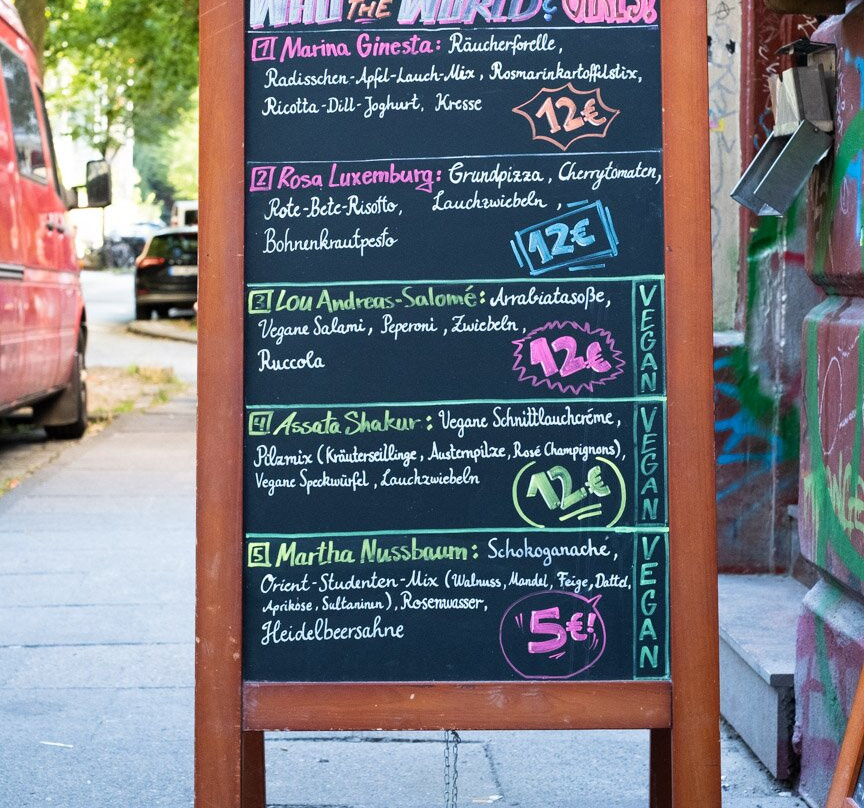 WHO THE WORLD? GIRLS!
1 Marina Ginesta: Räucherforelle,
Radisschen-Apfel-Lauch-Mix, Rosmarinkartoffelstix,
Ricotta-Dill-Joghurt, Kresse
12€
2 Rosa Luxemburg: Grundpizza, Cherrytomaten,
Rote-Bete-Risotto, Lauchzwiebeln,
Bohnenkrautpesto
12€
3 Lou Andreas-Salomé: Arrabiatasoße,
Vegane Salami, Peperoni, Zwiebeln,
Ruccola
12€
VEGAN
4 Assata Shakur: Vegane Schnittlauchcréme,
Pilzmix (Kräuterseillinge, Austernpilze, Rosé Champignons),
Vegane Speckwürfel, Lauchzwiebeln
12.€
VEGAN
5 Martha Nussbaum: Schokoganache,
Orient-Studenten-Mix (Walnuss, Mandel, Feige, Dattel,
Aprikose, Sultaninen), Rosenwasser,
Heidelbeersahne
5€!
VEGAN